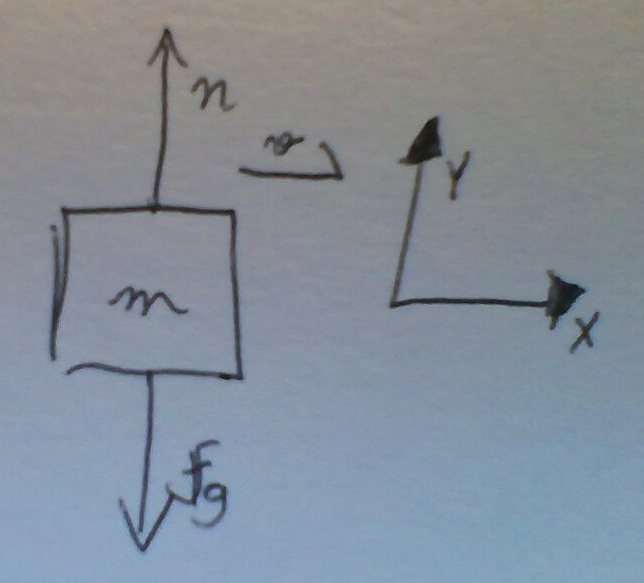 n
v
Y
m
X
Fg